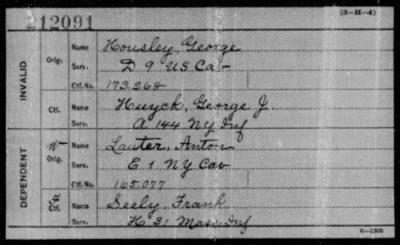 12091 (3-H-4)
INVALID
Orig. Name Housley, George
Serv. D 9 US Cav
Ctf. No. 173,268
Ctf. Name Huyck, George J.
Serv. A 144 NY Inf
DEPENDENT
W Orig. Name Lauter, Anton
Serv. E 1 NY Cav
Ctf. No. 165,077
Ctf. Name Seely, Frank
Serv. H 31 Mass. Inf
6-1303